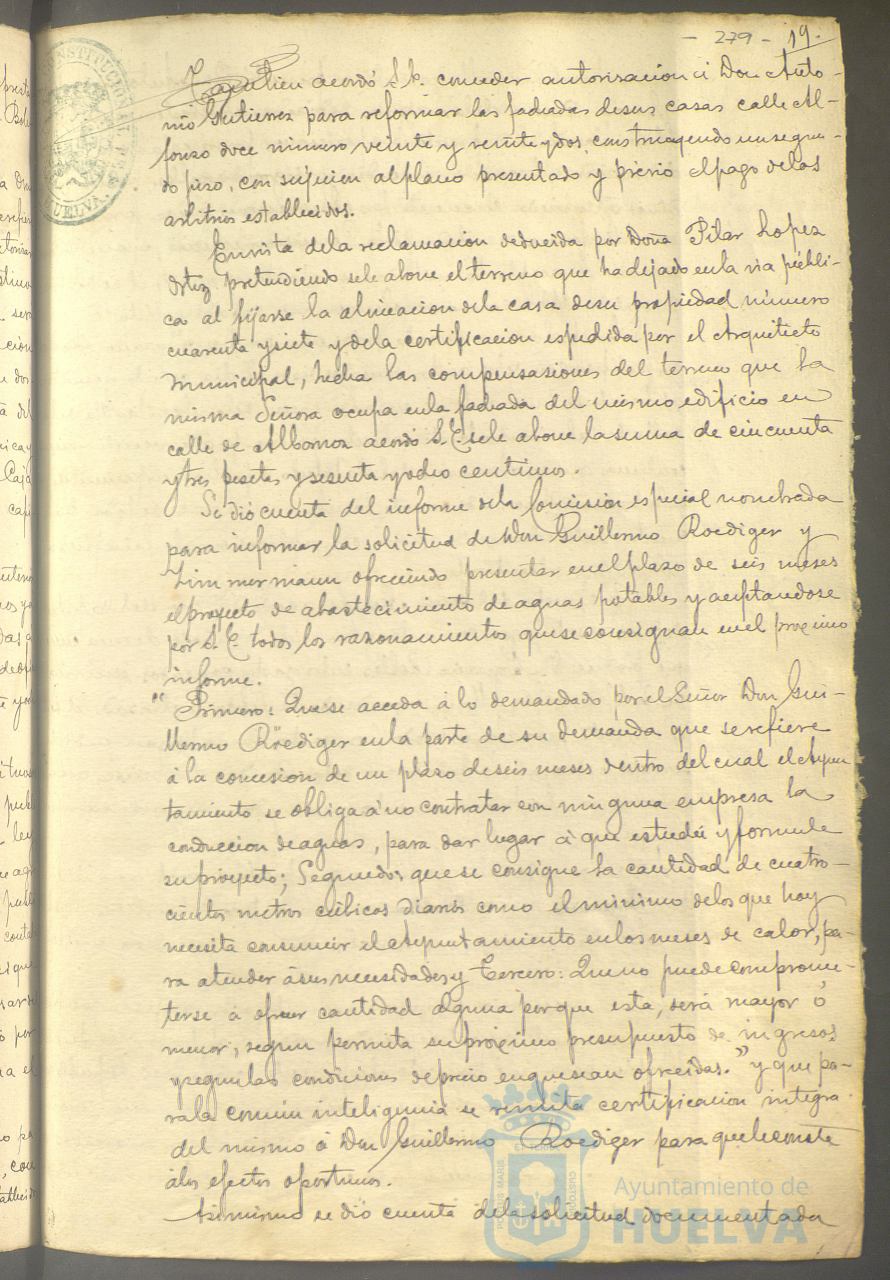 - 279 - 19.
Tambien acordó S.E. conceder autorización á Don Anto-
nio Gutierrez para reformar las fachadas desus casas calle Al-
fonzo doce número veinte y veinte ydos, construyendo unsegun-
do piso, con sujecion alplano presentado y prévio elpago delos
arbitrios establecidos.
En vista dela reclamacion deducida por Doña Pilar Lopez
pretendiendo sele abone elterreno que hadejado enla via públi-
ca al fijarse la alineacion dela casa desu propiedad número
cuarenta ysiete ydela certificacion espedida por el Arquitecto
Municipal, hecha las compensasiones del terreno que la
misma Señora ocupa enla fachada del mismo edificio en
calle de Albornoz acordó S.E. sele abone lasuma de cincuenta
ytres pesetas ysesenta yocho centimos.
Se dió cuenta del informe dela Comision especial nombrada
para informar la solicitud deDon Guillermo Roediger y
Zimmermann ofreciendo presentar enelplazo de seis meses
elproyecto de abastecimiento deaguas potables y aceptandose
por S.E. todos los razonamientos quese consignan enel proximo
informe.
"Primero: Quese acceda á lo demandado porel Señor Don Gui-
llermo Röediger enla parte de su demanda que serefiere
á la concesion de un plazo deseis meses dentro delcual elAyun
tamiento se obliga á no contratar con ninguna empresa la
conduccion deaguas, para dar lugar á que estudie yformule
suproyecto; Segundo: quese consigne la cantidad de cuatro-
cientos metros cúbicos diarios como elminimo delos que hoy
necesita consumir elAyuntamiento enlosmeses de calor, pa-
ra atender ásus necesidades, y Tercero: Queno puede comprome-
terse á ofrecer cantidad alguna porque esta, será mayor ó
menor, segun permita supróximo presupuesto de ingresos
ysegunlas condiciones deprecio enquesean ofrecidas." y que pa-
rala comun inteligencia se remita certificacion integra
del mismo á Don Guillermo Roediger para queleconste
álos efectos oportunos.
Asimismo se dió cuenta dela solicitud documentada
CONSTITUCIONAL
HUELVA.
PORTUS MARIS ET TERRAE CUSTODIA
Ayuntamiento de
HUELVA